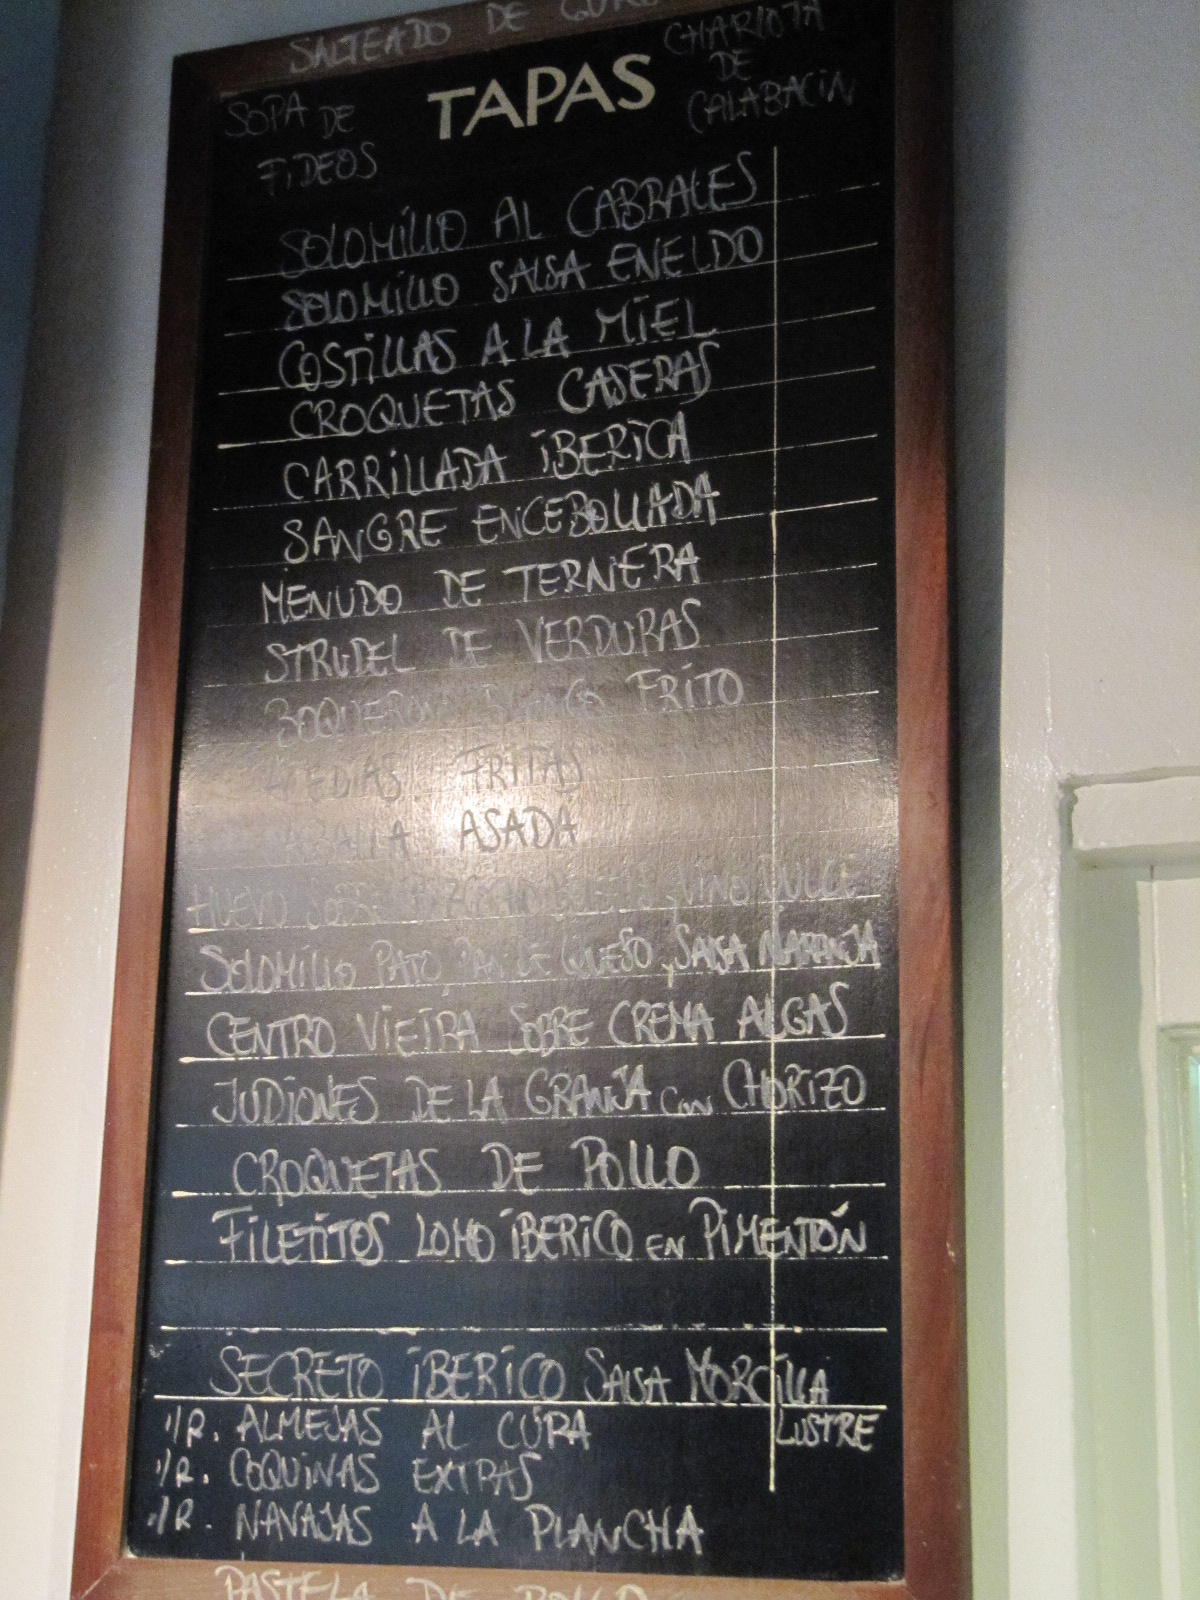 SALTEADO DE
CHARLOTA
DE
CALABACIN
TAPAS
SOPA DE
FIDEOS
SOLOMILLO AL CABRALES
SOLOMILLO SALSA ENELDO
COSTILLAS A LA MIEL
CROQUETAS CASERAS
CARRILLADA IBERICA
SANGRE ENCEBOLLADA
MENUDO DE TERNERA
STRUDEL DE VERDURAS
FRITO
FRITAS
ASADA
HUEVO SOBRE VINO DULCE
SOLOMILLO PATO, PAN DE QUESO, SALSA NARANJA
CENTRO VIEIRA SOBRE CREMA ALGAS
JUDIONES DE LA GRANJA CON CHORIZO
CROQUETAS DE POLLO
FILETITOS LOMO IBERICO EN PIMENTÓN
SECRETO IBERICO SALSA MORCILLA
LUSTRE
1/R. ALMEJAS AL CURA
1/R. COQUINAS EXTRAS
1/R. NAVAJAS A LA PLANCHA
PASTELA DE POLLO